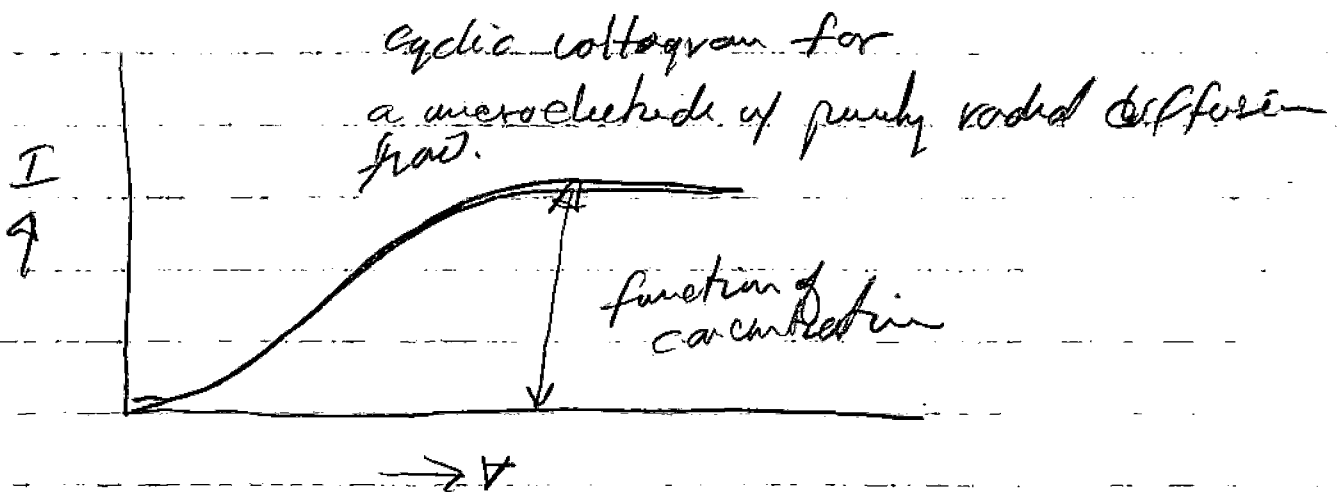 cyclic voltagram for
a microelectrode w/ purely radial diffusion
I
function of
concentration
V